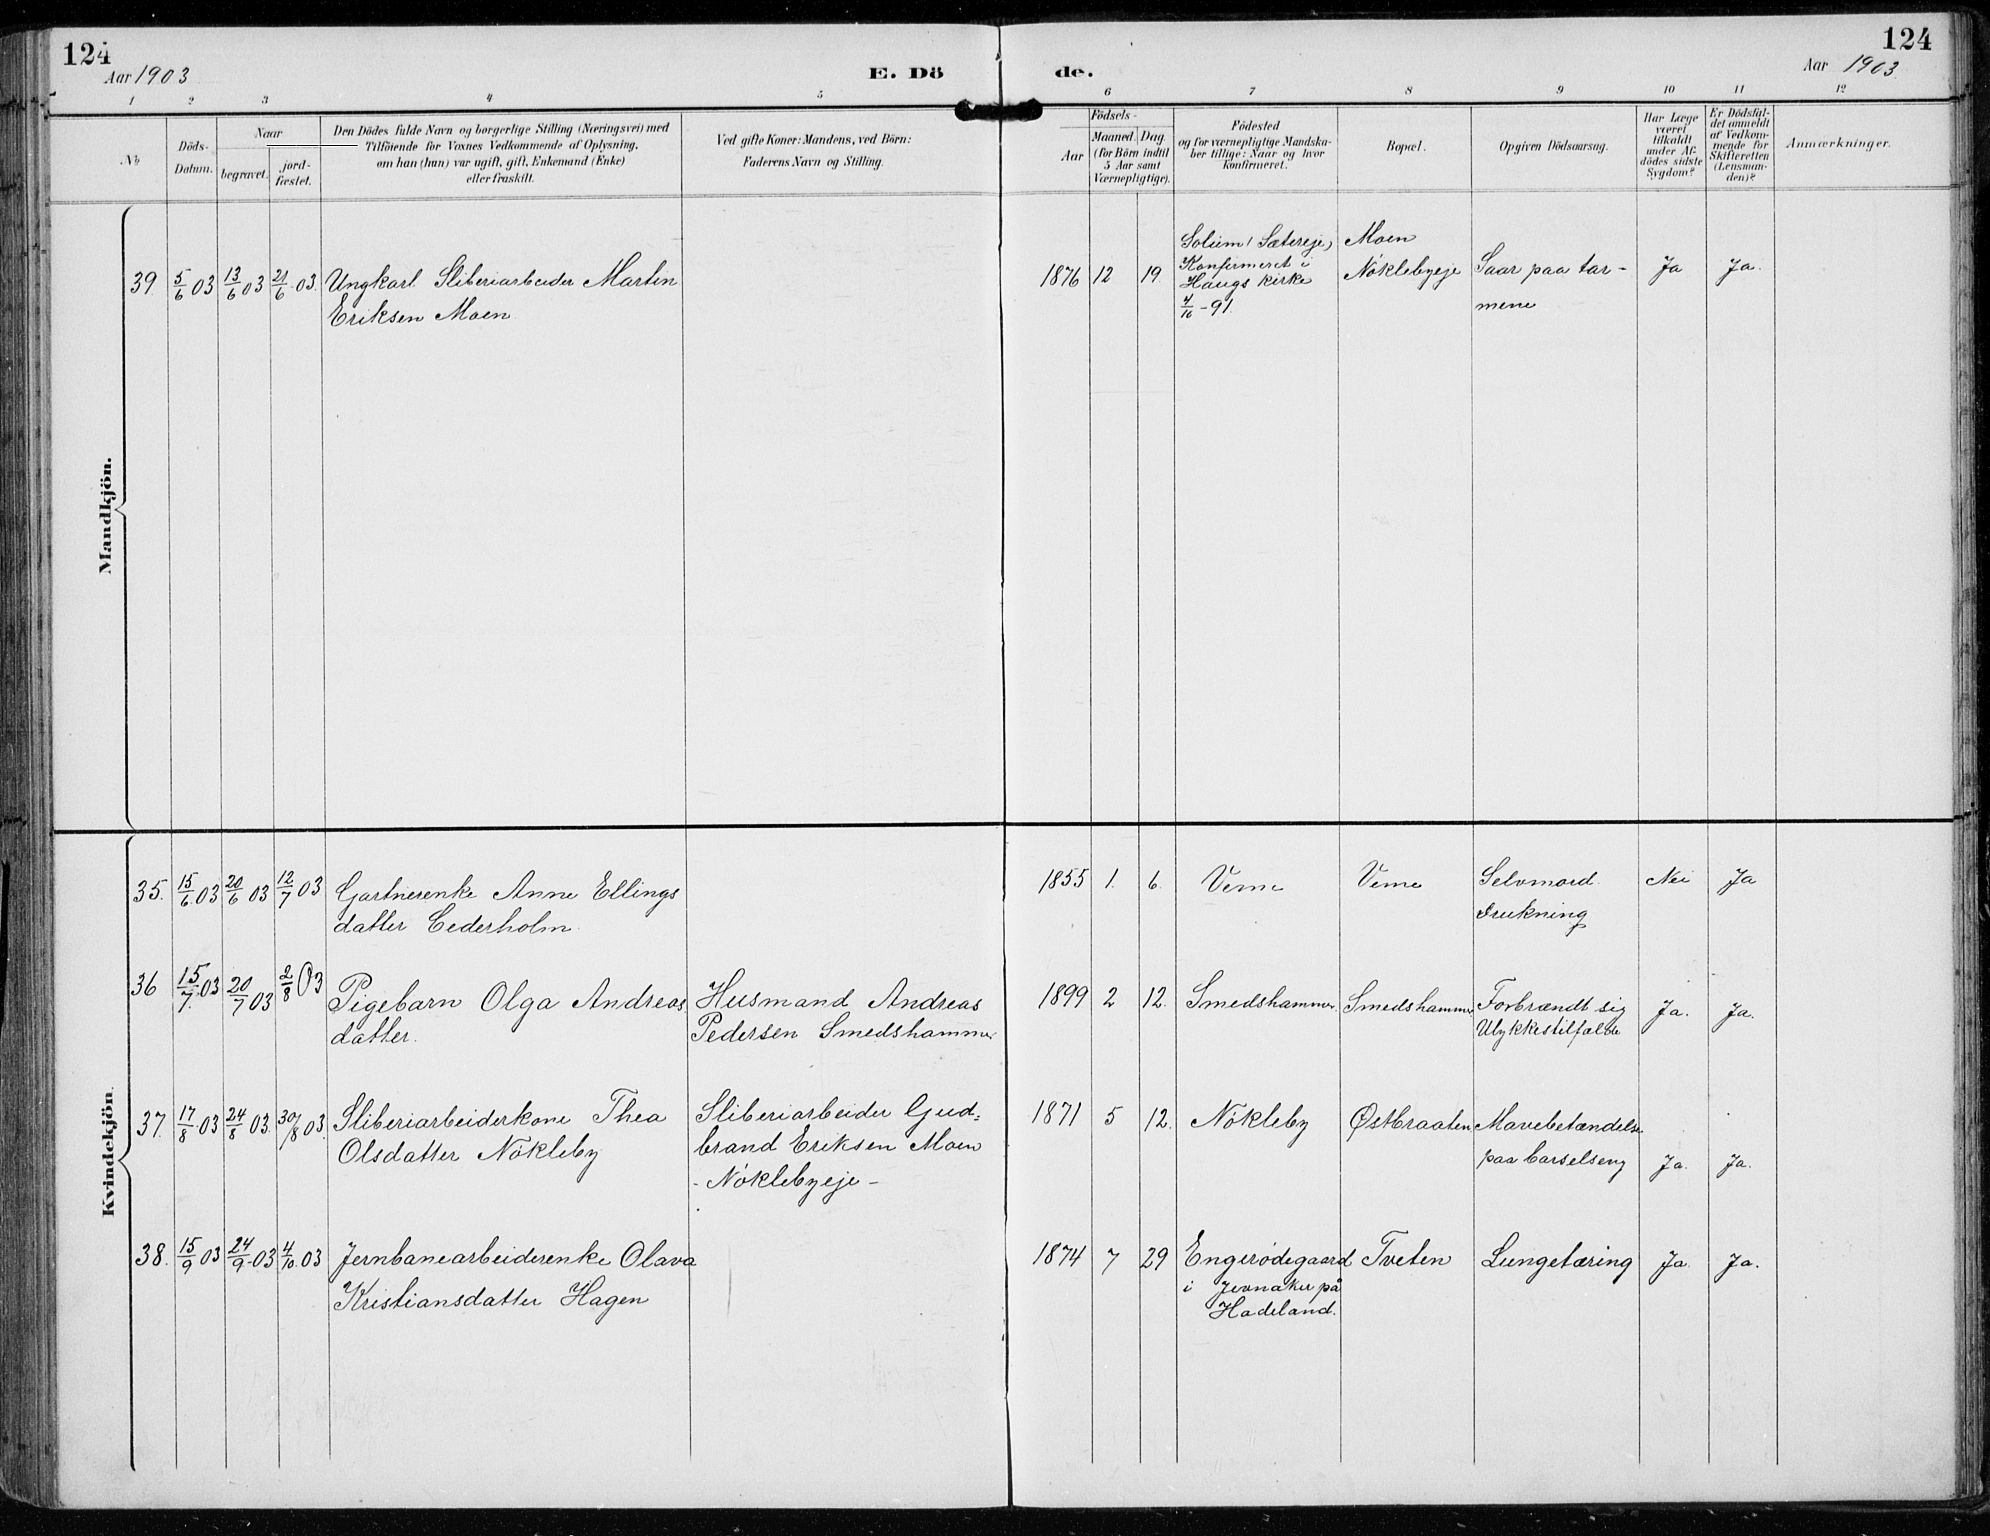 124
124
Aar 1903
E. Dö
de.
Aar 1903
1 2 3 4 5 6 7 8 9 10 11 12
No
Döds-
Datum.
Naar
begravet.
jord-
fæstet.
Den Dödes fulde Navn og borgerlige Stilling (Næringsvei) med
Tilföiende for Voxnes Vedkommende af Oplysning,
om han (hun) var ugift, gift, Enkemand (Enke)
eller fraskilt.
Ved gifte Koner: Mandens, ved Börn:
Faderens Navn og Stilling.
Födsels-
Aar
Maaned. Dag.
(for Börn indtil
5 Aar samt
Værnepligtige).
Födested
og for værnepligtige Mandska-
ber tillige: Naar og hvor
konfirmeret.
Bopæl.
Opgiven Dödsaarsag.
Har Læge
været
tilkaldt
under Af-
dödes sidste
Sygdom?
Er Dödsfal-
det anmeldt
af Vedkom-
mende for
Skifteretten
(Lensman-
den)?
Anmærkninger.
Mandkjön.
39. 5/6 03 13/6 03 21/6 03. Ungkarl Sliberiarbeider Martin
Eriksen Moen.
1876 12 19.
Solum (Sætereje)
Konfirmeret i
Haugs kirke
4/10 - 91.
Moen
Nöklebyeje
Saar paa tar-
mene
Ja Ja.
Kvindekjön
35. 15/6 03 20/6 03 12/7 03 Gartnerenke Anne Ellings
datter Cederholm.
1855 1. 6. Veme Veme Selvmord. Nei Ja
drukning
36 15/7 03 20/7 03 2/8 03 Pigebarn Olga Andreas
datter.
Husmand Andreas
Pedersen Smedshammer
1899 2 12. Smedshammer. Smedshammer Forbrændt sig Ja. Ja.
Ulykkestilfælde
37. 17/8 03 24/8 03. 30/8 03. Sliberiarbeiderkone Thea
Olsdatter Nökleby
Sliberiarbeider Gud=
brand Eriksen Moen
- Nöklebyeje -
1871 5 12. Nökleby Østbraaten Mavebetændelse
paa barselseng Ja. Ja.
38. 15/9 03 24/9 03 4/10 03 Jernbanearbeiderenke Olava
Kristiansdatter Hagen
1874 7 29 Engerödegaard Tveten Lungetæring Ja. Ja.
i Jevnaker på
Hadeland.